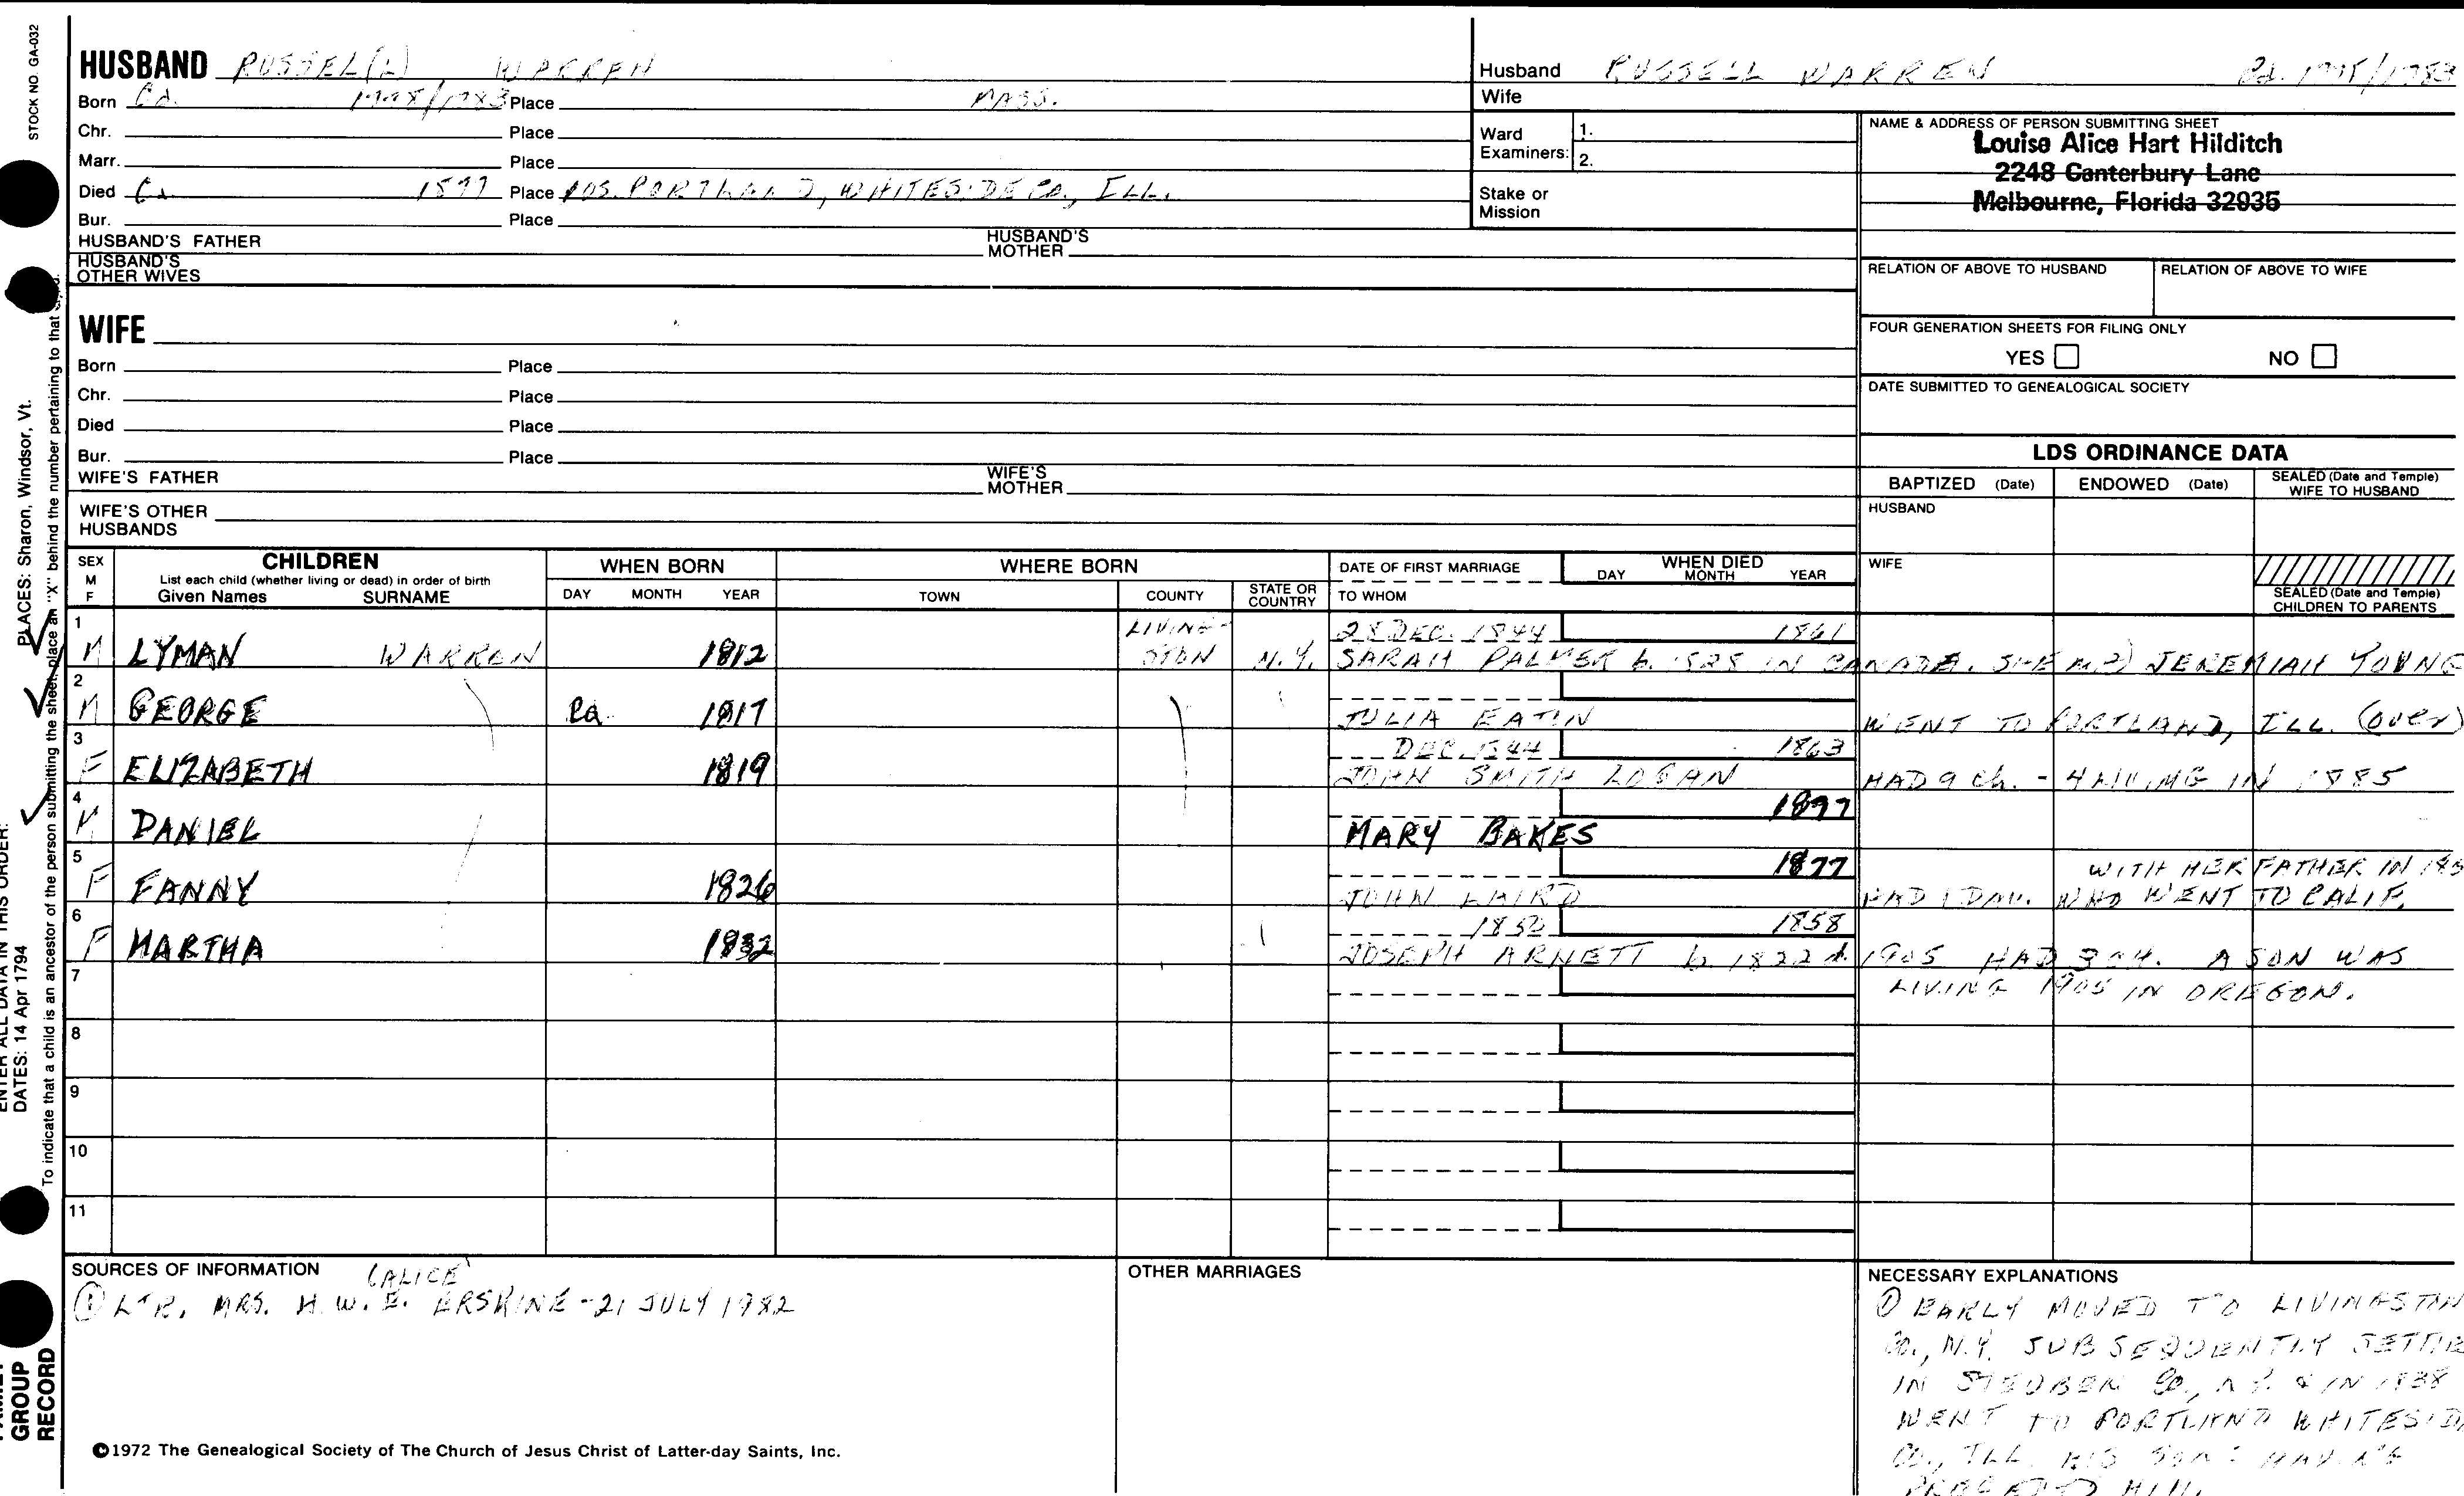 STOCK NO. GA-032
HUSBAND RUSSEL(L) WARREN
Born Ca. Place MASS.
Chr. Place
Marr. Place
Died Ca. Place POS. PORTLAND, WHITESIDE CO., ILL.
Bur. Place
HUSBAND'S FATHER HUSBAND'S MOTHER
HUSBAND'S OTHER WIVES
Husband RUSSELL WARREN
Wife
Ward Examiners: 1.
2.
Stake or Mission
NAME & ADDRESS OF PERSON SUBMITTING SHEET
Louise Alice Hart Hilditch
2248 Canterbury Lane
Melbourne, Florida 32935
RELATION OF ABOVE TO HUSBAND RELATION OF ABOVE TO WIFE
FOUR GENERATION SHEETS FOR FILING ONLY
YES NO
DATE SUBMITTED TO GENEALOGICAL SOCIETY
WIFE
Born Place
Chr. Place
Died Place
Bur. Place
WIFE'S FATHER WIFE'S MOTHER
WIFE'S OTHER HUSBANDS
LDS ORDINANCE DATA
BAPTIZED (Date) ENDOWED (Date) SEALED (Date and Temple) WIFE TO HUSBAND
HUSBAND
WIFE
SEALED (Date and Temple) CHILDREN TO PARENTS
SEX M F
CHILDREN
List each child (whether living or dead) in order of birth
Given Names SURNAME
WHEN BORN
DAY MONTH YEAR
WHERE BORN
TOWN COUNTY STATE OR COUNTRY
DATE OF FIRST MARRIAGE
TO WHOM
WHEN DIED
DAY MONTH YEAR
1 LIVING- 28 DEC. 1844 1861
M LYMAN WARREN 1812 STON N.Y. SARAH PALMER b. 1828 IN CANADA. SHE m. 2) JEREMIAH YOUNG
2
M GEORGE Ca. 1817 JULIA EATIN WENT TO PORTLAND, ILL. (over)
3 DEC. 1844 1863
F ELIZABETH 1819 JOHN SMITH LOGAN HAD 9 ch. - 4 LIVING IN 1885
4 1897
M DANIEL MARY BAKES
5 1877 WITH HER FATHER IN
F FANNY 1826 JOHN LAIRD HAD 1 DAU. WHO WENT TO CALIF.
6 1850 1858
F MARTHA 1832 JOSEPH ARNETT b. 1822 d. 1905 HAD 3 CH. A SON WAS
7 LIVING 1905 IN OREGON.
8
9
10
11
SOURCES OF INFORMATION (ALICE
① LTR. MRS. H.W.E. ERSKINE - 21 JULY 1982
©1972 The Genealogical Society of The Church of Jesus Christ of Latter-day Saints, Inc.
OTHER MARRIAGES
NECESSARY EXPLANATIONS
① EARLY MOVED TO LIVINGSTON
CO., N.Y. SUBSEQUENTLY
IN STEUBEN CO., N.Y. & IN 1838
WENT TO PORTLAND WHITESIDE
CO., ILL. HIS SONS HAVING
HIM.
ENTER ALL DATA IN THIS ORDER:
DATES: 14 Apr 1794
PLACES: Sharon, Windsor, Vt.
To indicate that a child is an ancestor of the person submitting the sheet, place an "X" behind the number pertaining to that
GROUP
RECORD